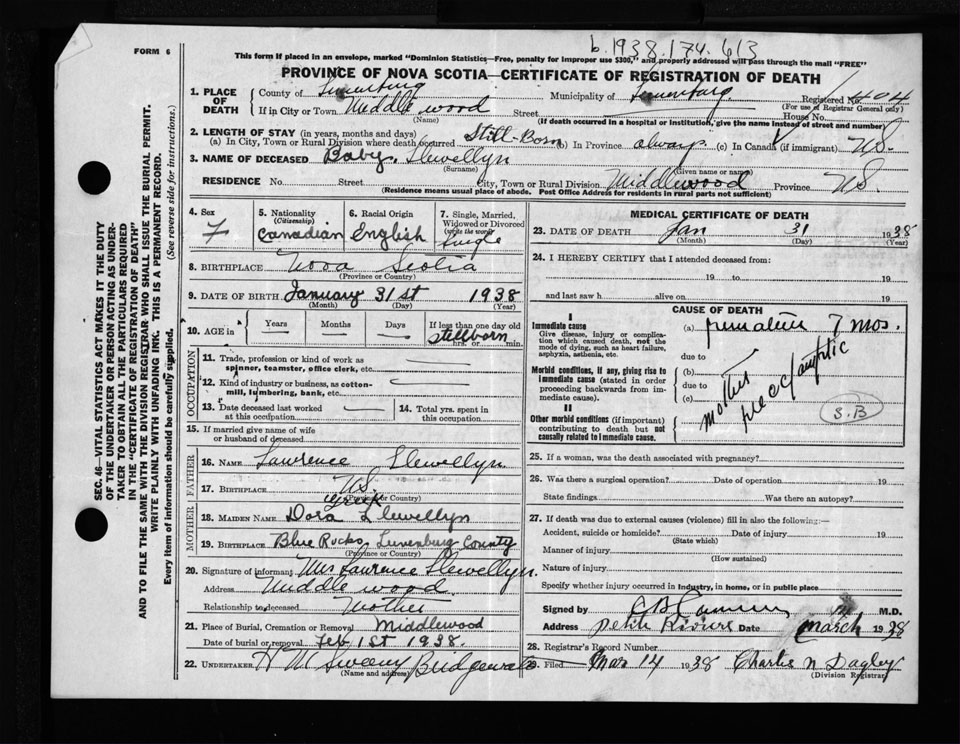 b. 1938. 174. 613
FORM 6
This form if placed in an envelope, marked "Dominion Statistics—Free, penalty for improper use $300," and properly addressed will pass through the mail "FREE"
PROVINCE OF NOVA SCOTIA—CERTIFICATE OF REGISTRATION OF DEATH
1. PLACE OF DEATH County of Lunenburg Municipality of Lunenburg Registered No. 404
(For use of Registrar General only)
If in City or Town Middlewood Street House No.
(Name) (If death occurred in a hospital or institution, give the name instead of street and number)
2. LENGTH OF STAY (in years, months and days)
(a) In City, Town or Rural Division where death occurred Still-Born (b) In Province always (c) In Canada (if immigrant) N.S.
3. NAME OF DECEASED Baby. Llewellyn
(Surname) (Given name or names)
RESIDENCE No. Street City, Town or Rural Division Middlewood Province N.S.
(Residence means usual place of abode. Post Office Address for residents in rural parts not sufficient)
4. Sex F
5. Nationality (Citizenship) Canadian
6. Racial Origin English
7. Single, Married, Widowed or Divorced (write the word) Single
8. BIRTHPLACE Nova Scotia
(Province or Country)
9. DATE OF BIRTH January 31st 1938
(Month) (Day) (Year)
10. AGE in Years Months Days If less than one day old
Stillborn hrs. or min.
OCCUPATION
11. Trade, profession or kind of work as spinner, teamster, office clerk, etc.
12. Kind of industry or business, as cotton-mill, lumbering, bank, etc.
13. Date deceased last worked at this occupation
14. Total yrs. spent in this occupation
15. If married give name of wife or husband of deceased
FATHER
16. NAME Lawrence Llewellyn
17. BIRTHPLACE N.S.
(Province or Country)
MOTHER
18. MAIDEN NAME Dora Llewellyn
19. BIRTHPLACE Blue Rocks, Lunenburg County
(Province or Country)
20. Signature of informant Mrs Lawrence Llewellyn.
Address Middlewood
Relationship to deceased Mother
21. Place of Burial, Cremation or Removal Middlewood
Date of burial or removal Feb 1st 1938.
22. UNDERTAKER W M Sweeny Bridgewater
(Name and address)
MEDICAL CERTIFICATE OF DEATH
23. DATE OF DEATH Jan 31 1938
(Month) (Day) (Year)
24. I HEREBY CERTIFY that I attended deceased from:
19 to 19
and last saw h alive on 19
CAUSE OF DEATH
I
Immediate cause
Give disease, injury or complication which caused death, not the mode of dying, such as heart failure, asphyxia, asthenia, etc.
(a) premature 7 mos.
due to
Morbid conditions, if any, giving rise to immediate cause (stated in order proceeding backwards from immediate cause).
(b)
due to
(c)
mother preeclamptic
S.B
II
Other morbid conditions (if important) contributing to death but not causally related to immediate cause.
25. If a woman, was the death associated with pregnancy?
26. Was there a surgical operation? Date of operation 19
State findings Was there an autopsy?
27. If death was due to external causes (violence) fill in also the following:—
Accident, suicide or homicide? Date of injury 19
(State which)
Manner of injury
(How sustained)
Nature of injury
Specify whether injury occurred in industry, in home, or in public place
Signed by M.D.
Address Petite Riviere Date March 1938
28. Registrar's Record Number
29. Filed Mar 14 1938 Charles N Dagley
(Division Registrar)
SEC. 46—VITAL STATISTICS ACT MAKES IT THE DUTY
OF THE UNDERTAKER OR PERSON ACTING AS UNDER-
TAKER TO OBTAIN ALL THE PARTICULARS REQUIRED
IN THE "CERTIFICATE OF REGISTRATION OF DEATH"
AND TO FILE THE SAME WITH THE DIVISION REGISTRAR WHO SHALL ISSUE THE BURIAL PERMIT.
WRITE PLAINLY WITH UNFADING INK. THIS IS A PERMANENT RECORD.
Every item of information should be carefully supplied. (See reverse side for instructions.)